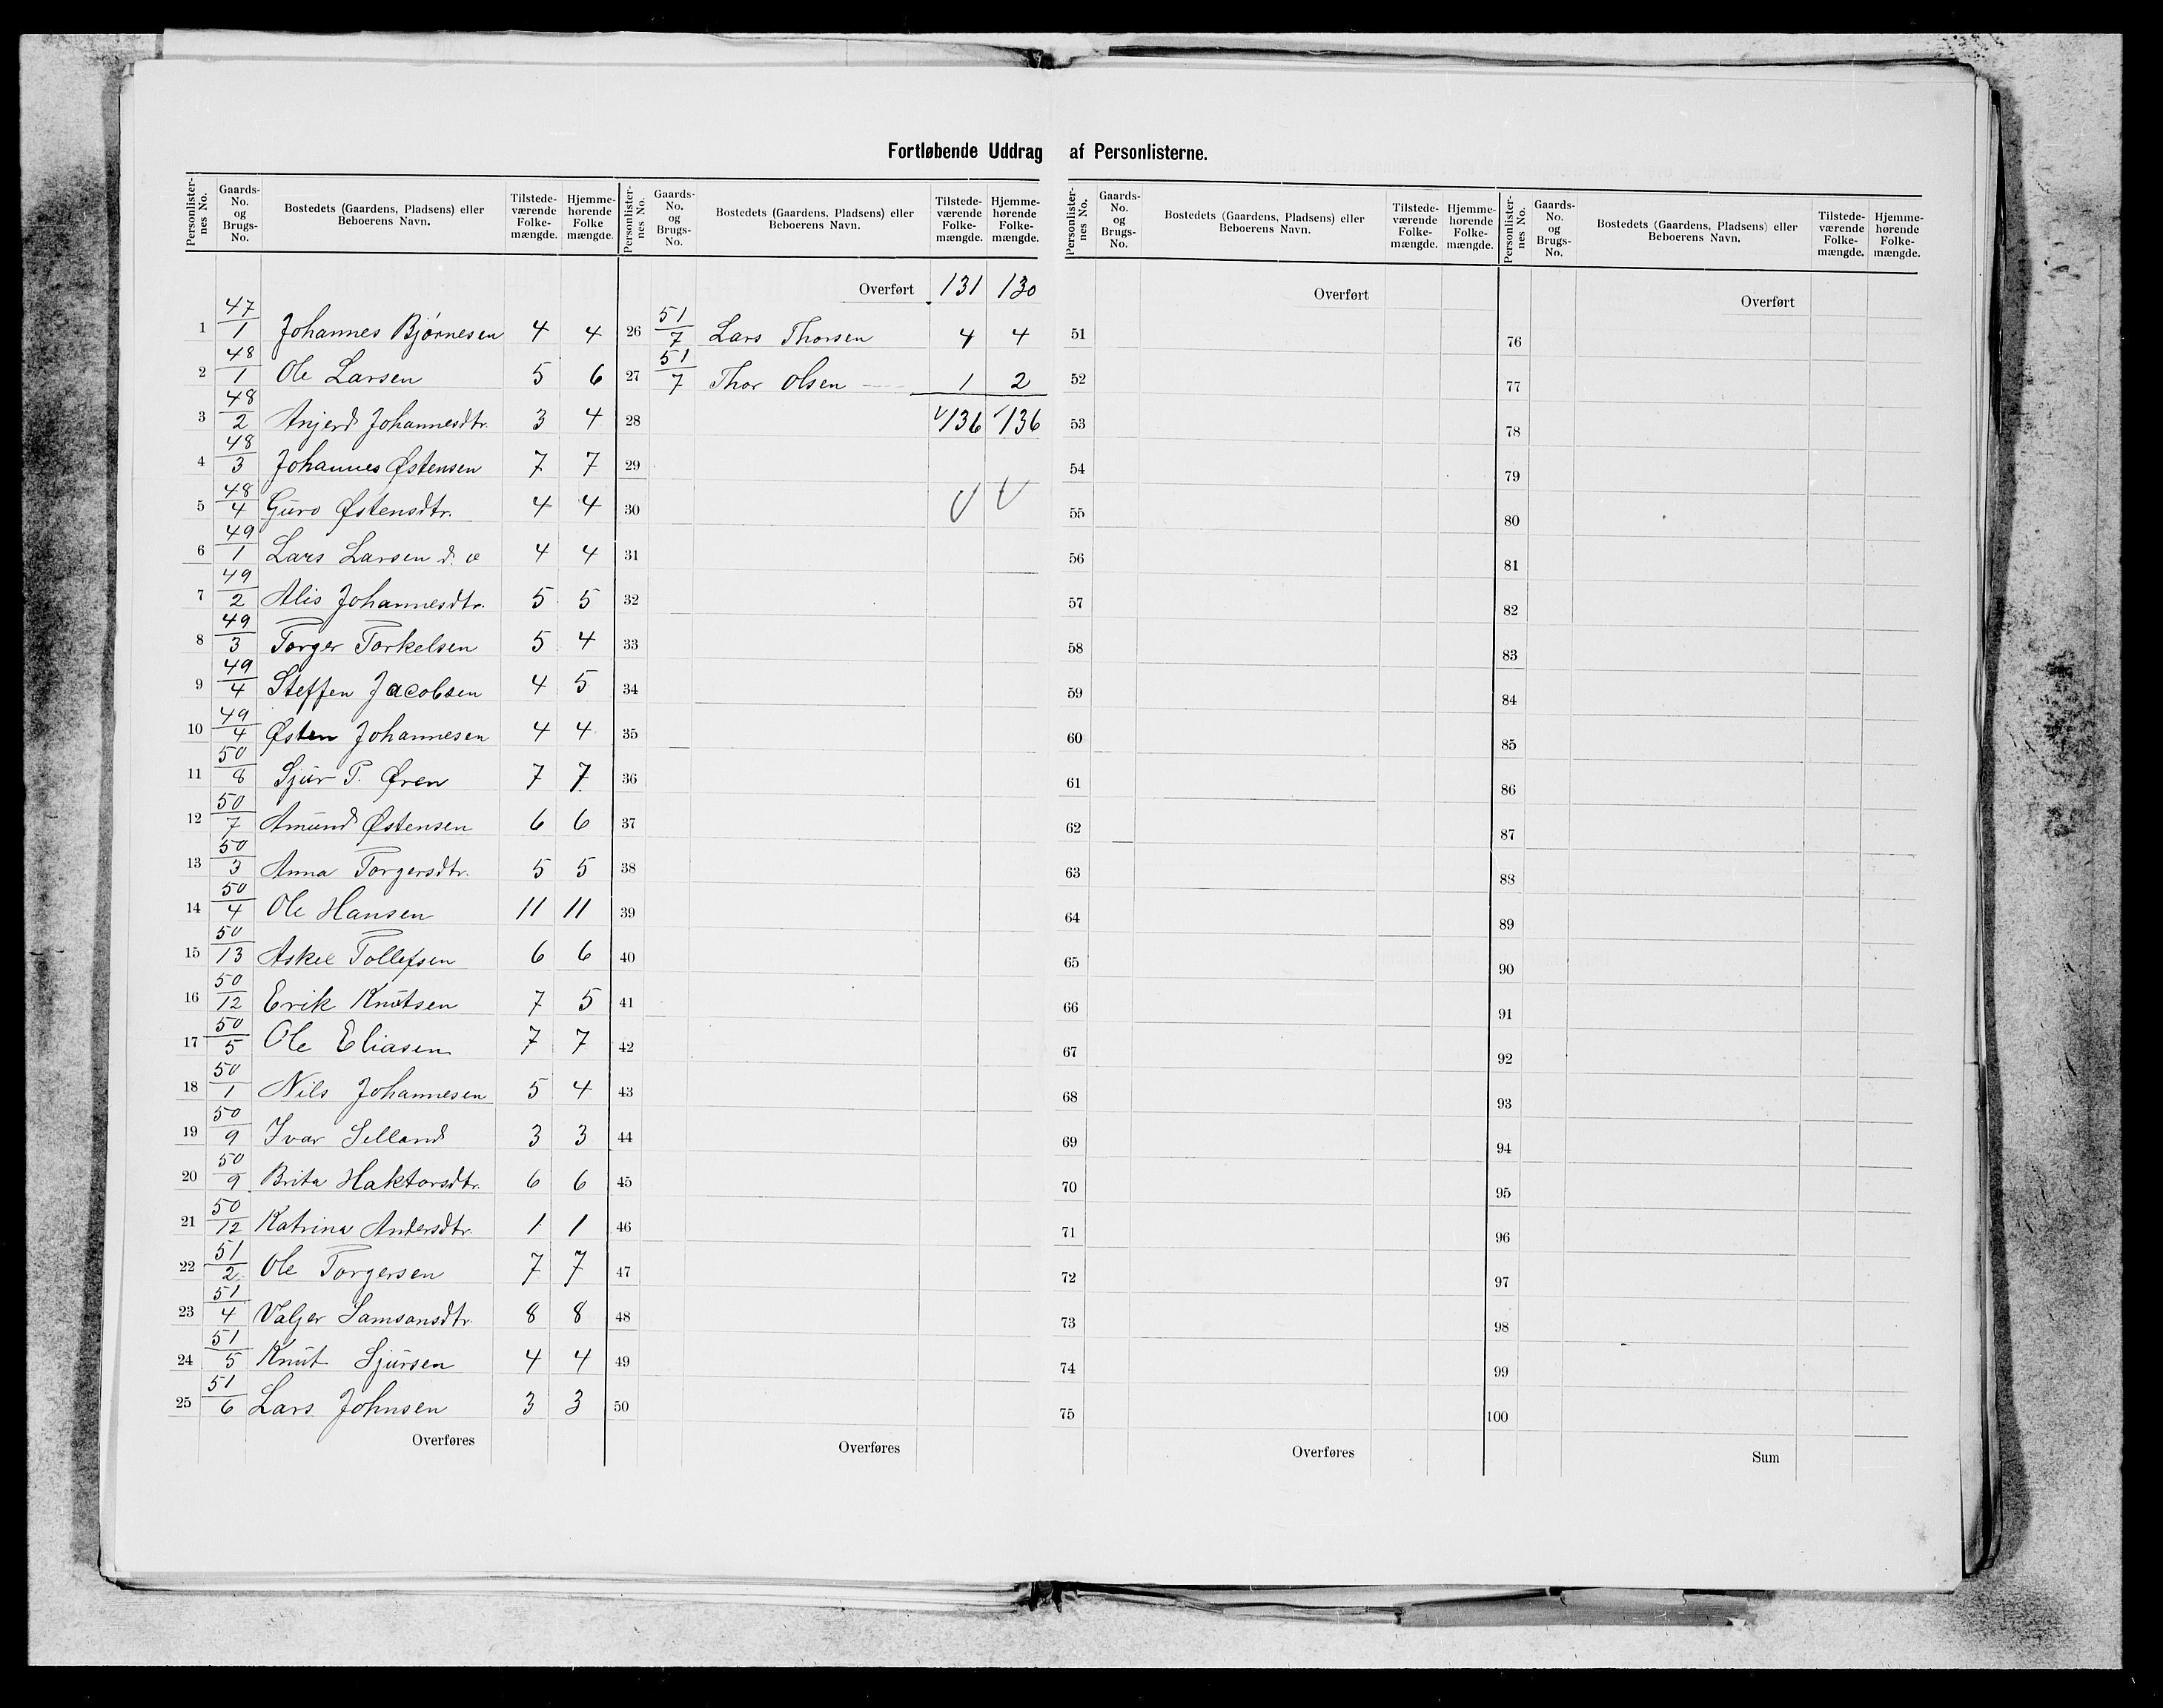 Fortløbende Uddrag af Personlisterne.
Personlisternes No. Gaards-No. og Brugs-No. Bostedets (Gaardens, Pladsens) eller Beboerens Navn. Tilstedeværende Folkemængde. Hjemmehørende Folkemængde.
1 47/1 Johannes Bjørnesen 4 4
2 48/1 Ole Larsen 5 6
3 48/2 Anjerd Johannesdtr. 3 4
4 48/3 Johannes Østensen 7 7
5 48/4 Guro Østensdtr. 4 4
6 49/1 Lars Larsen d. æ 4 4
7 49/2 Alis Johannesdtr. 5 5
8 49/3 Torger Torkelsen 5 4
9 49/4 Steffen Jacobsen 4 5
10 49/4 Østen Johannesen 4 4
11 50/8 Sjur T. Øren 7 7
12 50/7 Amund Østensen 6 6
13 50/3 Anna Torgersdtr. 5 5
14 50/4 Ole Hansen 11 11
15 50/13 Askel Tollefsen 6 6
16 50/12 Erik Knutsen 7 5
17 50/5 Ole Eliasen 7 7
18 50/1 Nils Johannesen 5 4
19 50/9 Ivar Selland 3 3
20 50/9 Brita Haktorsdtr. 6 6
21 50/12 Katrina Andersdtr. 1 1
22 51/2 Ole Torgersen 7 7
23 51/4 Valjer Samsonsdtr. 8 8
24 51/5 Knut Sjursen 4 4
25 51/6 Lars Johnsen 3 3
Overføres
Personlisternes No. Gaards-No. og Brugs-No. Bostedets (Gaardens, Pladsens) eller Beboerens Navn. Tilstedeværende Folkemængde. Hjemmehørende Folkemængde.
Overført 131 130
26 51/7 Lars Thorsen 4 4
27 51/7 Thor Olsen 1 2
28 136 136
29
30
31
32
33
34
35
36
37
38
39
40
41
42
43
44
45
46
47
48
49
50
Overføres
Personlisternes No. Gaards-No. og Brugs-No. Bostedets (Gaardens, Pladsens) eller Beboerens Navn. Tilstedeværende Folkemængde. Hjemmehørende Folkemængde.
Overført
51
52
53
54
55
56
57
58
59
60
61
62
63
64
65
66
67
68
69
70
71
72
73
74
75
Overføres
Personlisternes No. Gaards-No. og Brugs-No. Bostedets (Gaardens, Pladsens) eller Beboerens Navn. Tilstedeværende Folkemængde. Hjemmehørende Folkemængde.
Overført
76
77
78
79
80
81
82
83
84
85
86
87
88
89
90
91
92
93
94
95
96
97
98
99
100
Sum